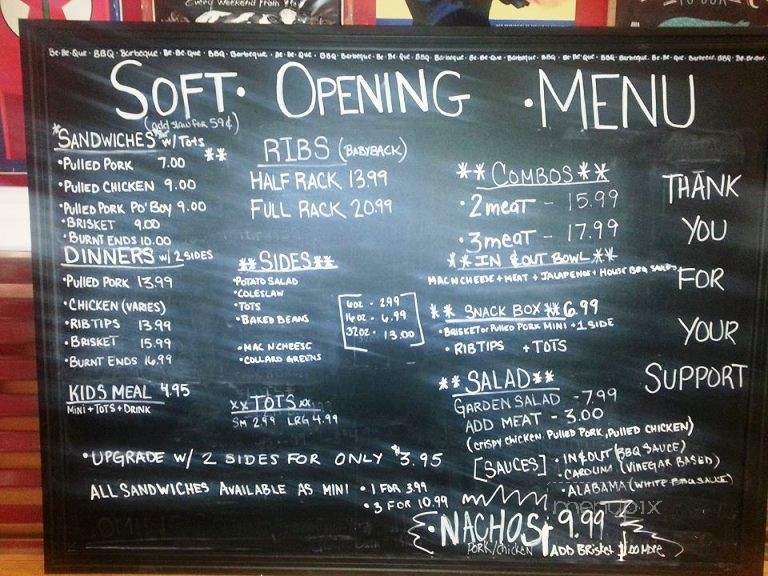 Be-Be-Que · BBQ · Barbeque · Be-Be-Que · BBQ · Barbeque · Be-Be-Que · BBQ
SOFT · OPENING · MENU
(add slaw for 59¢)
*SANDWICHES** w/ TOTS
**
·PULLED PORK 7.00
·PULLED CHICKEN 9.00
·PULLED PORK PO'BOY 9.00
·BRISKET 9.00
·BURNT ENDS 10.00
DINNERS w/ 2 SIDES
·PULLED PORK 13.99
·CHICKEN (VARIES)
·RIB TIPS 13.99
·BRISKET 15.99
·BURNT ENDS 16.99
KIDS MEAL 4.95
MINI + TOTS + DRINK
RIBS (BABYBACK)
HALF RACK 13.99
FULL RACK 20.99
**SIDES**
·POTATO SALAD
·COLESLAW
·TOTS
·BAKED BEANS
·MAC N CHEESE
·COLLARD GREENS
6oz - 2.99
16oz - 6.99
32oz - 13.00
xxTOTSxx
SM 2.99 LRG 4.99
**COMBOS**
·2 MEAT - 15.99
·3 MEAT - 17.99
**IN & OUT BOWL**
MAC N CHEESE + MEAT + JALAPENOS + HOUSE BBQ SAUCE
** SNACK BOX ** 6.99
·BRISKET or PULLED PORK MINI + 1 SIDE
·RIB TIPS + TOTS
**SALAD**
GARDEN SALAD - 7.99
ADD MEAT - 3.00
(CRISPY CHICKEN, PULLED PORK, PULLED CHICKEN)
[SAUCES] ·IN & OUT (BBQ SAUCE)
·CAROLINA (VINEGAR BASED)
·ALABAMA (WHITE BBQ SAUCE)
THANK
YOU
FOR
YOUR
SUPPORT
·UPGRADE W/ 2 SIDES FOR ONLY $3.95
ALL SANDWICHES AVAILABLE AS MINI ·1 FOR 3.99
·3 FOR 10.99
·NACHOS 9.99
PORK/CHICKEN ADD BRISKET $1.00 MORE
menupix